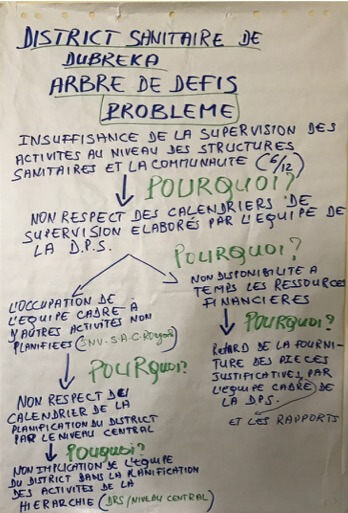 DISTRICT SANITAIRE DE
DUBREKA
ARBRE DE DEFIS
PROBLEME
INSUFFISANCE DE LA SUPERVISION DES
ACTIVITES AU NIVEAU DES STRUCTURES
SANITAIRES ET LA COMMUNAUTE (6/12)
POURQUOI?
NON RESPECT DES CALENDRIERS DE
SUPERVISION ELABORÉS PAR L'EQUIPE DE
LA D.P.S.
POURQUOI?
L'OCCUPATION DE
L'EQUIPE CADRE À
D'AUTRES ACTIVITÉS NON
PLANIFIEES (SNV-S.A.C-
POURQUOI?
NON RESPECT DE
CALENDRIER DE LA
PLANIFICATION DU DISTRICT
PAR LE NIVEAU CENTRAL
POURQUOI?
NON IMPLICATION DE L'EQUIPE
DU DISTRICT DANS LA PLANIFICATION
DES ACTIVITES DE LA
HIERARCHIE (DRS/NIVEAU CENTRAL)
NON DISPONIBILITE A
TEMPS LES RESSOURCES
FINANCIERES
POURQUOI?
RETARD DE LA FOURNI-
TURE DES PIECES
JUSTIFICATIVES, PAR
L'EQUIPE CADRE DE
LA DPS.
ET LES RAPPORTS